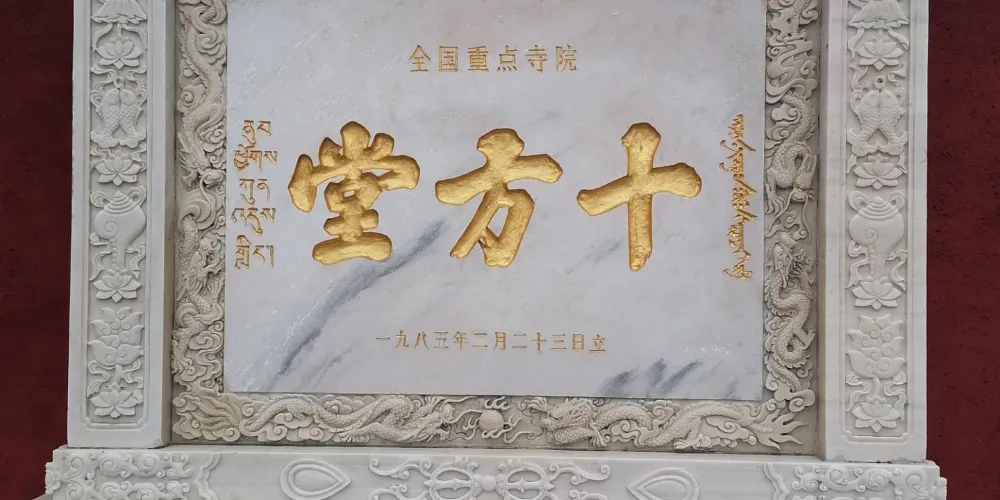 全国重点寺院
十方堂
ཕྱོགས
ཀུན
འདུས
གླིང་།
一九八五年二月二十三日立